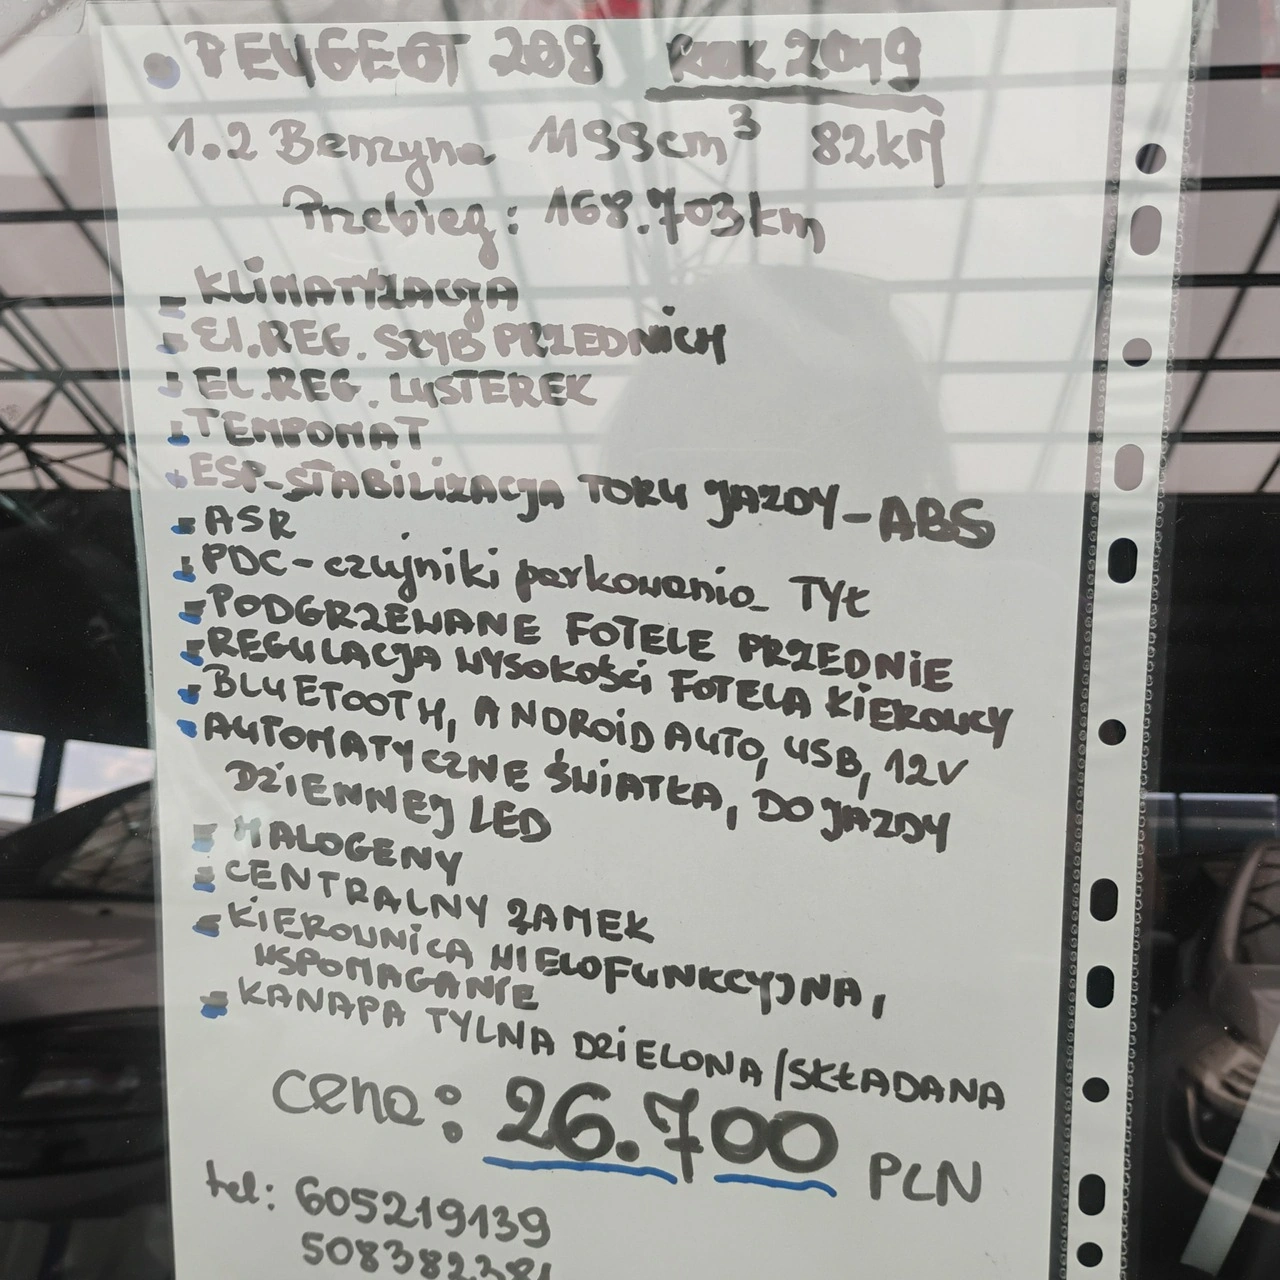 • PEUGEOT 208 ROK 2019
1.2 Benzyna 1199cm³ 82kM
Przebieg: 168.703km
- KLIMATYZACJA
- El. REG. SZYB PRZEDNICH
- EL. REG. LUSTEREK
- TEMPOMAT
- ESP-STABILIZACJA TORU JAZDY-ABS
- ASR
- PDC-czujniki parkowania_ TYŁ
- PODGRZEWANE FOTELE PRZEDNIE
- REGULACJA WYSOKOŚCI FOTELA KIEROWCY
- BLUETOOTH, ANDROID AUTO, USB, 12V
- AUTOMATYCZNE ŚWIATŁA, DO JAZDY
DZIENNEJ LED
- HALOGENY
- CENTRALNY ZAMEK
- KIEROWNICA WIELOFUNKCYJNA,
WSPOMAGANIE
- KANAPA TYLNA DZIELONA/SKŁADANA
cena: 26.700 PLN
tel: 605219139
508382381